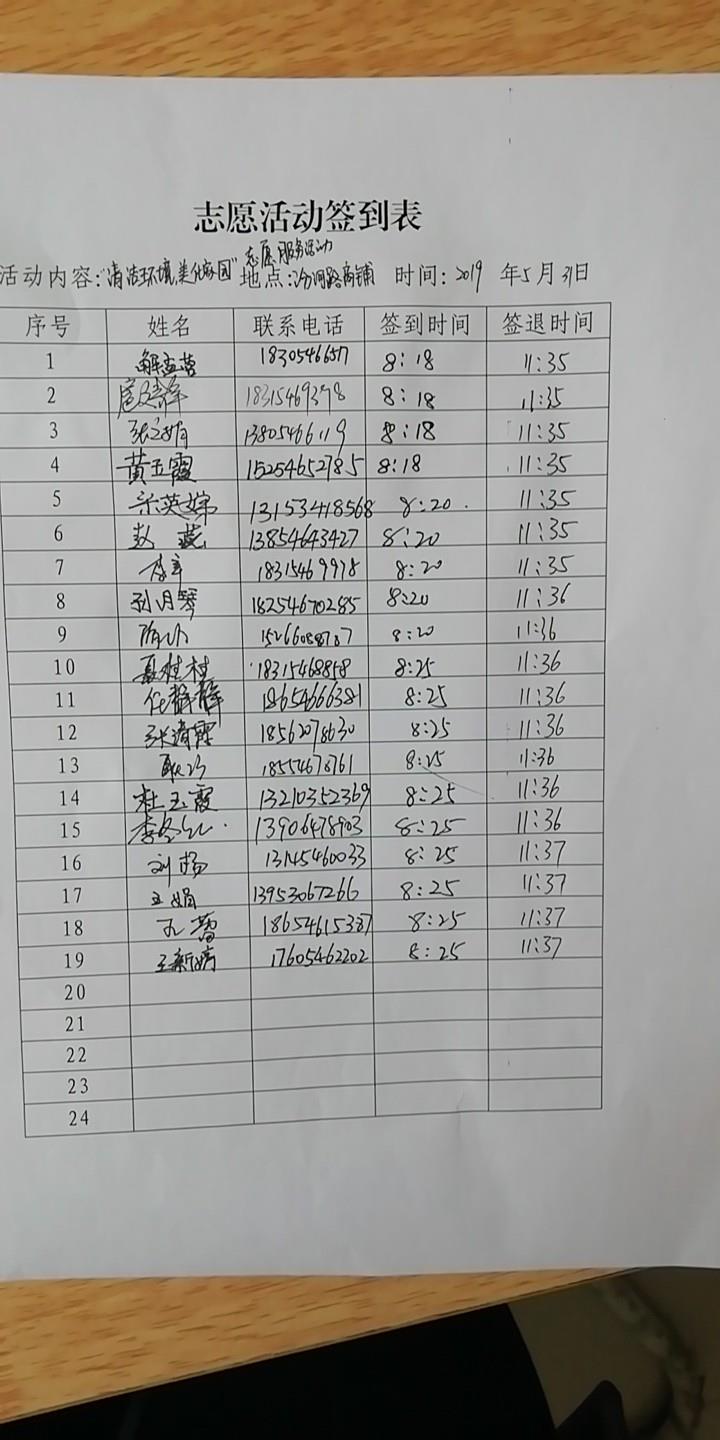 志愿活动签到表
志愿服务活动
活动内容:"清洁环境,美化家园" 地点:汾河路商铺 时间:2019 年5月31日
序号 姓名 联系电话 签到时间 签退时间
1 解孟营 8:18 11:35
2 18315469378 8:18 11:35
3 13805466119 8:18 11:35
4 黄玉霞 15254652785 8:18 11:35
5 13153418568 8:20 11:35
6 赵燕 13854643427 8:20 11:35
7 18315469978 8:20 11:35
8 刘月琴 18254670285 8:20 11:36
9 8:20 11:36
10 聂桂村 18315468858 8:25 11:36
11 任静静 18654666381 8:25 11:36
12 张清霞 18562078630 8:25 11:36
13 18554678761 8:25 11:36
14 杜玉霞 13210352369 8:25 11:36
15 13906478903 8:25 11:36
16 刘扬 13145460033 8:25 11:37
17 王娟 13953067266 8:25 11:37
18 孔蕾 18654615387 8:25 11:37
19 王新婷 17605462202 8:25 11:37
20
21
22
23
24